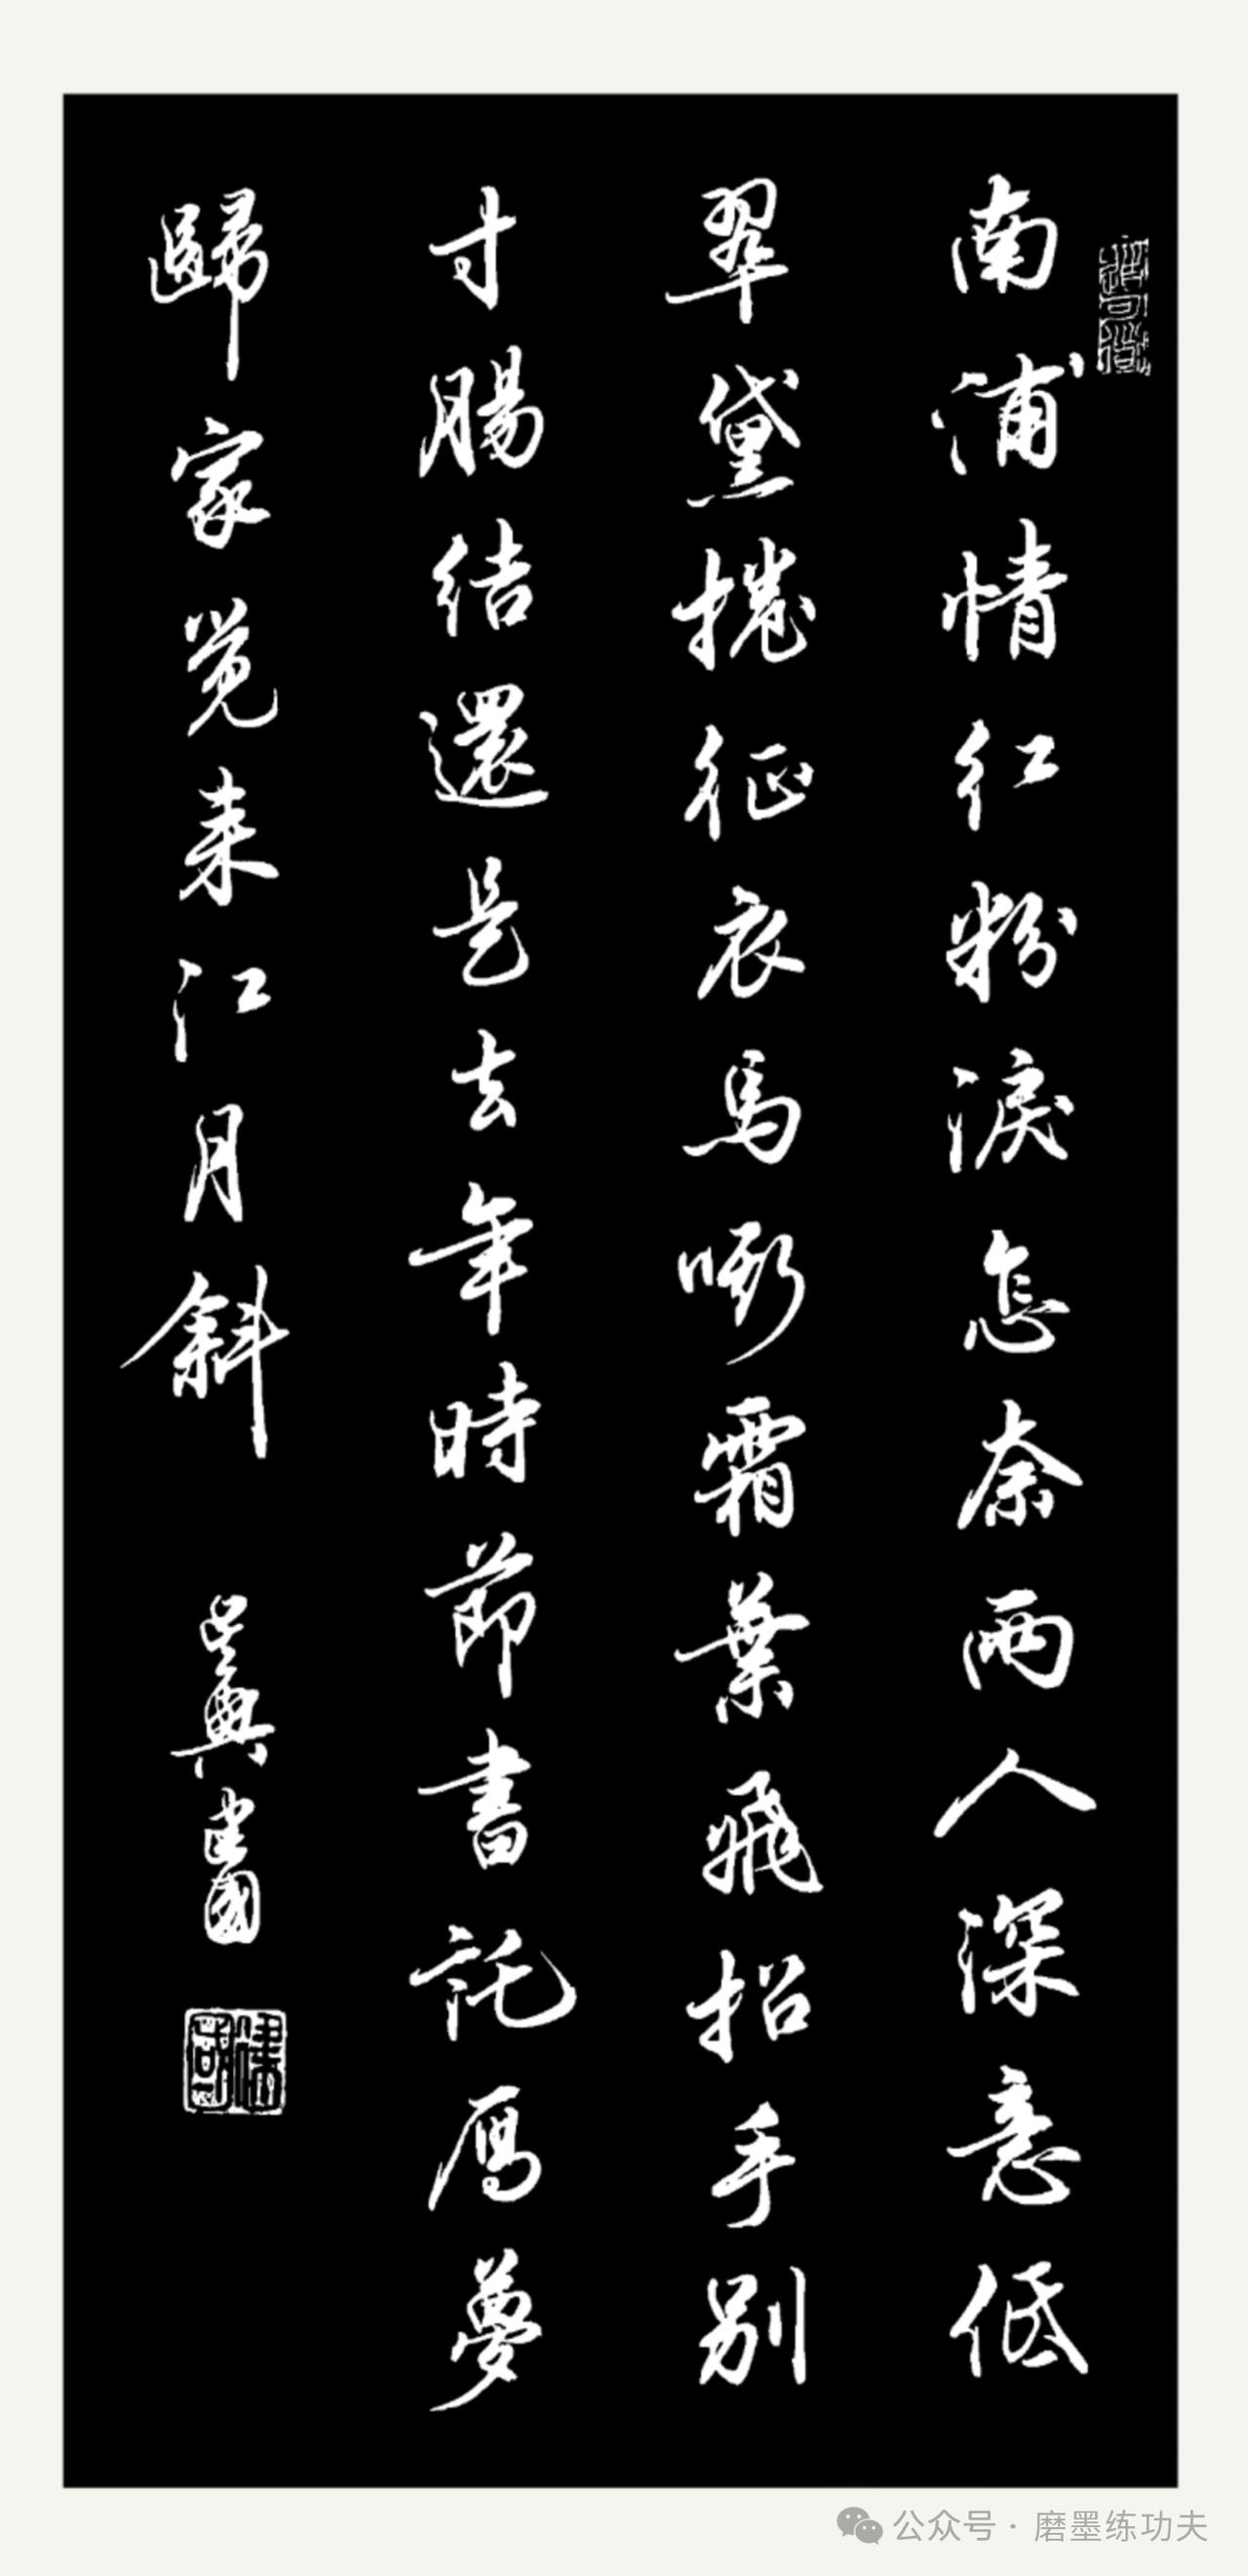 南浦情红粉淚怎奈兩人深意低
翠黛捲征衣馬嘶霜葉飛招手別
寸腸结還是去年時節書託鴈夢
歸家覚来江月斜
吴興建國
建國
公众号 · 磨墨练功夫